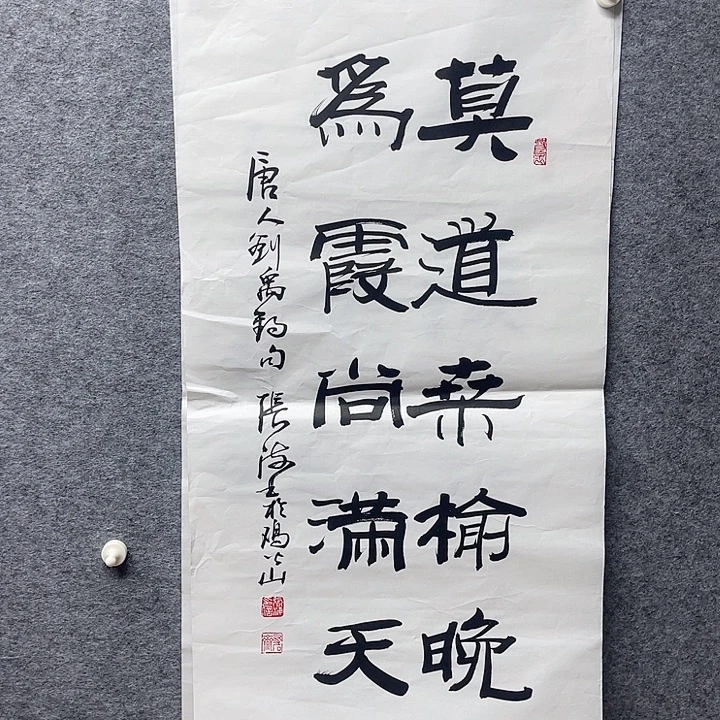 莫道桒榆晚
為霞尚滿天
唐人劉禹錫句 張海书於鸡公山